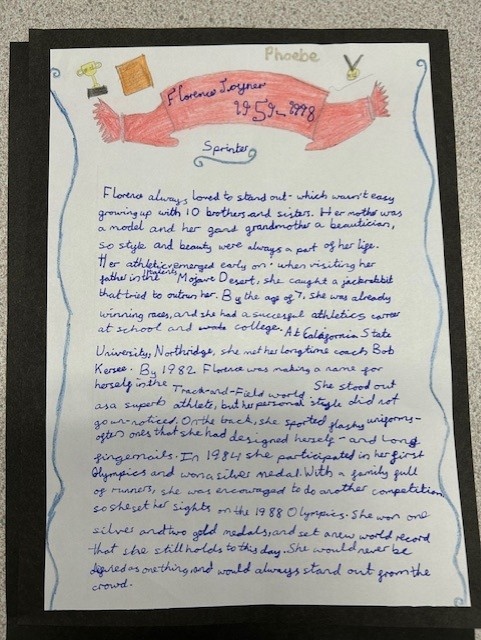 Phoebe
Florence Joyner
1959-1998
Sprinter
Florence always loved to stand out - which wasn't easy
growing up with 10 brothers and sisters. Her mother was
a model and her gand grandmother a beautician,
so style and beauty were always a part of her life.
Her athletic talents emerged early on: when visiting her
father in the Mojave Desert, she caught a jackrabbit
that tried to outrun her. By the age of 7, she was already
winning races, and she had a successful athletics career
at school and college. At California State
University, Northridge, she met her longtime coach, Bob
Kersee. By 1982 Florence was making a name for
herself in the Track-and-Field world. She stood out
as a superb athlete, but her personal style did not
go un-noticed. On the track, she sported flashy uniforms-
often ones that she had designed herself - and long
fingernails. In 1984 she participated in her first
Olympics and won a silver medal. With a family full
of runners, she was encouraged to do another competition
so she set her sights on the 1988 Olympics. She won one
silver and two gold medals, and set a new world record
that she still holds to this day. She would never be
as one thing, and would always stand out from the
crowd.